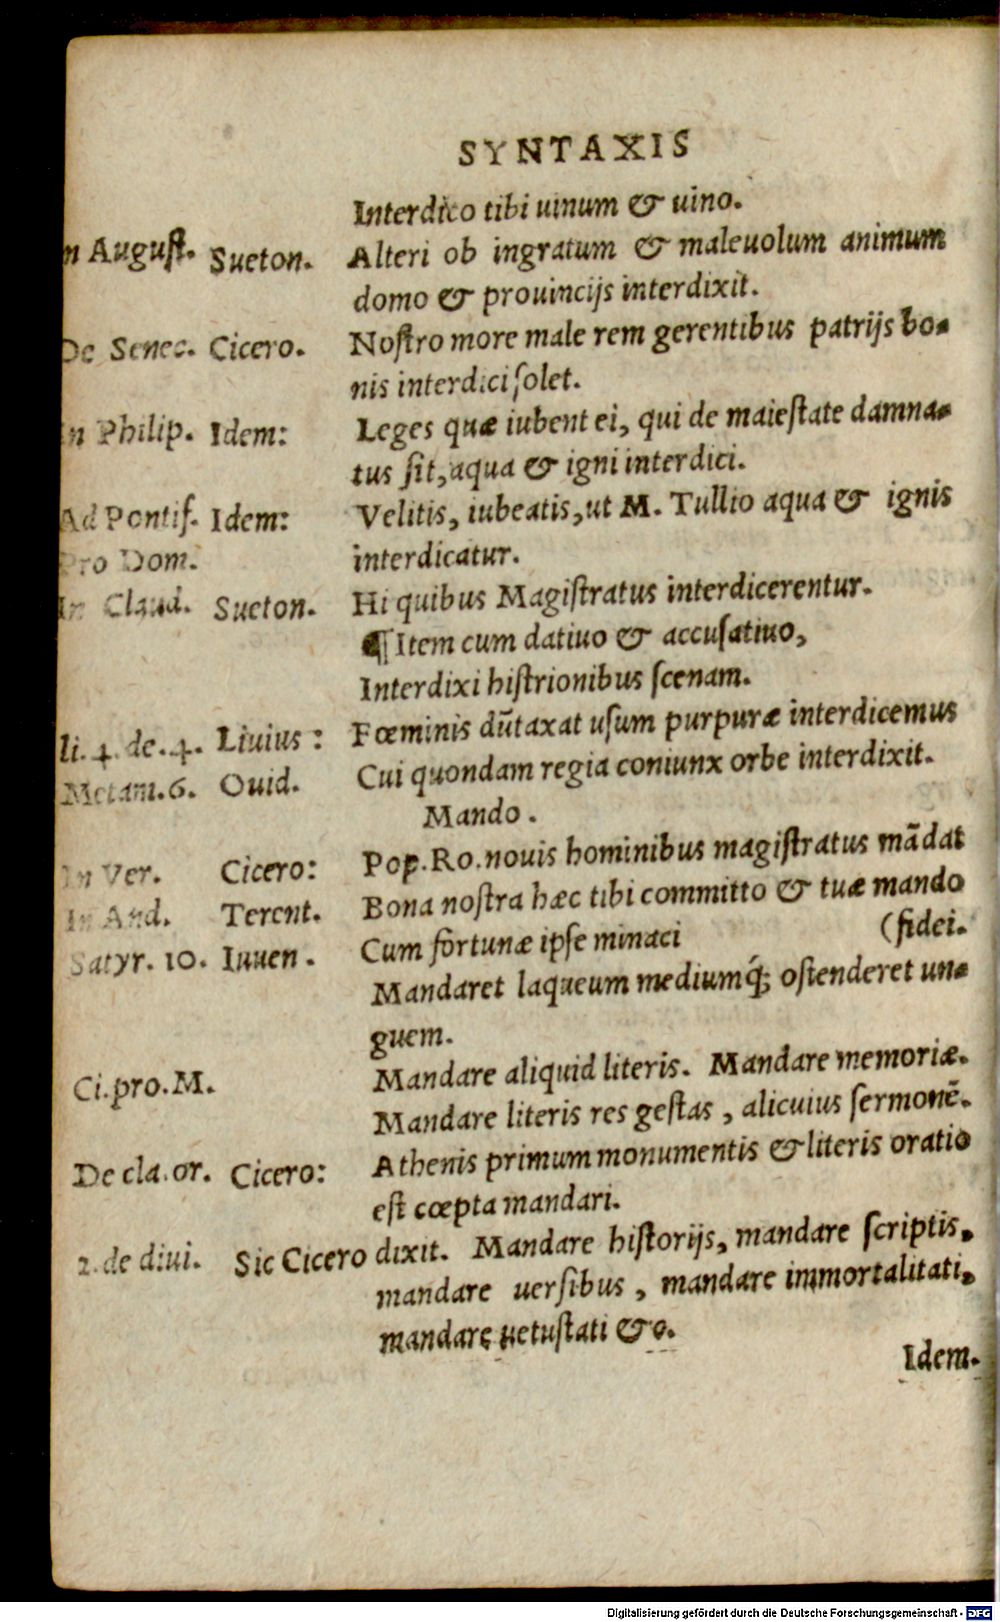 SYNTAXIS
Interdico tibi uinum & uino.
n August. Sueton. Alteri ob ingratum & maleuolum animum
domo & prouincijs interdixit.
De Senec. Cicero. Noſtro more male rem gerentibus patrijs bo-
nis interdici ſolet.
In Philip. Idem: Leges quæ iubent ei, qui de maieſtate damna-
tus ſit, aqua & igni interdici.
Ad Pontif. Idem: Velitis, iubeatis, ut M. Tullio aqua & ignis
Pro Dom. interdicatur.
In Claud. Sueton. Hi quibus Magiſtratus interdicerentur.
¶ Item cum datiuo & accuſatiuo,
Interdixi hiſtrionibus ſcenam.
li. 4. de. 4. Liuius: Fœminis dūtaxat uſum purpuræ interdicemus
Metam. 6. Ouid. Cui quondam regia coniunx orbe interdixit.
Mando.
In Ver. Cicero: Pop. Ro. nouis hominibus magiſtratus mādat
In And. Terent. Bona noſtra hæc tibi committo & tuæ mando
Satyr. 10. Iuuen. Cum fortunæ ipſe minaci (fidei.
Mandaret laqueum mediumq́; oſtenderet un-
guem.
Ci. pro. M. Mandare aliquid literis. Mandare memoriæ.
Mandare literis res geſtas, alicuius ſermonē.
De cla. or. Cicero: Athenis primum monumentis & literis oratio
eſt cœpta mandari.
2. de diui. Sic Cicero dixit. Mandare hiſtorijs, mandare ſcriptis,
mandare uerſibus, mandare immortalitati,
mandare uetuſtati &c.
Idem.
Digitalisierung gefördert durch die Deutsche Forschungsgemeinschaft - DFG